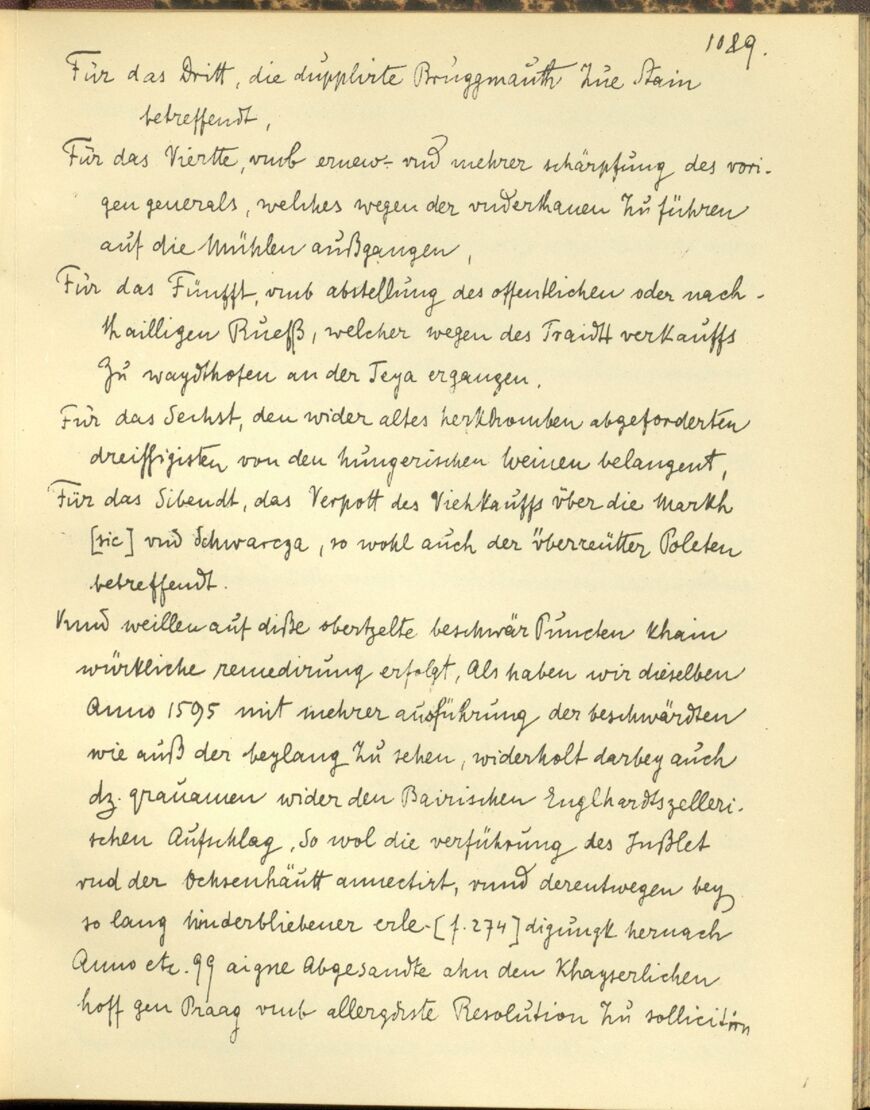 1089.
Für das Dritt, die dupplirte Bruggmauth Zue Stain
betreffendt,
Für das Viertte, vmb ernew- vnd mehrer schärpfung des vori-
gen generals, welches wegen der vnderthanen Zu führen
auf die Mühlen außgangen,
Für das Fünfft, vmb abstellung des offentlichen oder nach-
thailligen Rueß, welcher wegen des Traidt verkauffs
Zu waydthofen an der Teya ergangen.
Für das Sechst, den wider altes herkhomben abgeforderten
dreissigisten von den hungerischen Weinen belangent,
Für das Sibendt, das Verpott des Viehkauffs über die Markh
[sic] vnd Schwarcza, so wohl auch der überreütter Poleten
betreffendt.
Vnnd weillen auf diße obertzelte beschwär Puncten khain
würkliche remedirung erfolgt, Als haben wir dieselben
Anno 1595 mit mehrer ausführung der beschwärdten
wie auß der beylang Zu sehen, widerholt darbey auch
dz. grauamen wider den Bairischen Englhardtszelleri-
schen Aufschlag, So wol die verführung des Inßlet
vnd der Ochsenhäutt annectirt, vnnd derentwegen bey
so lang hinderbliebener erle-[f. 274]digungk hernach
Anno etc. 99 aigne Abgesandte ahn den Khayserlichen
hoff gen Praag vmb allergdste Resolution Zu sollicitirn